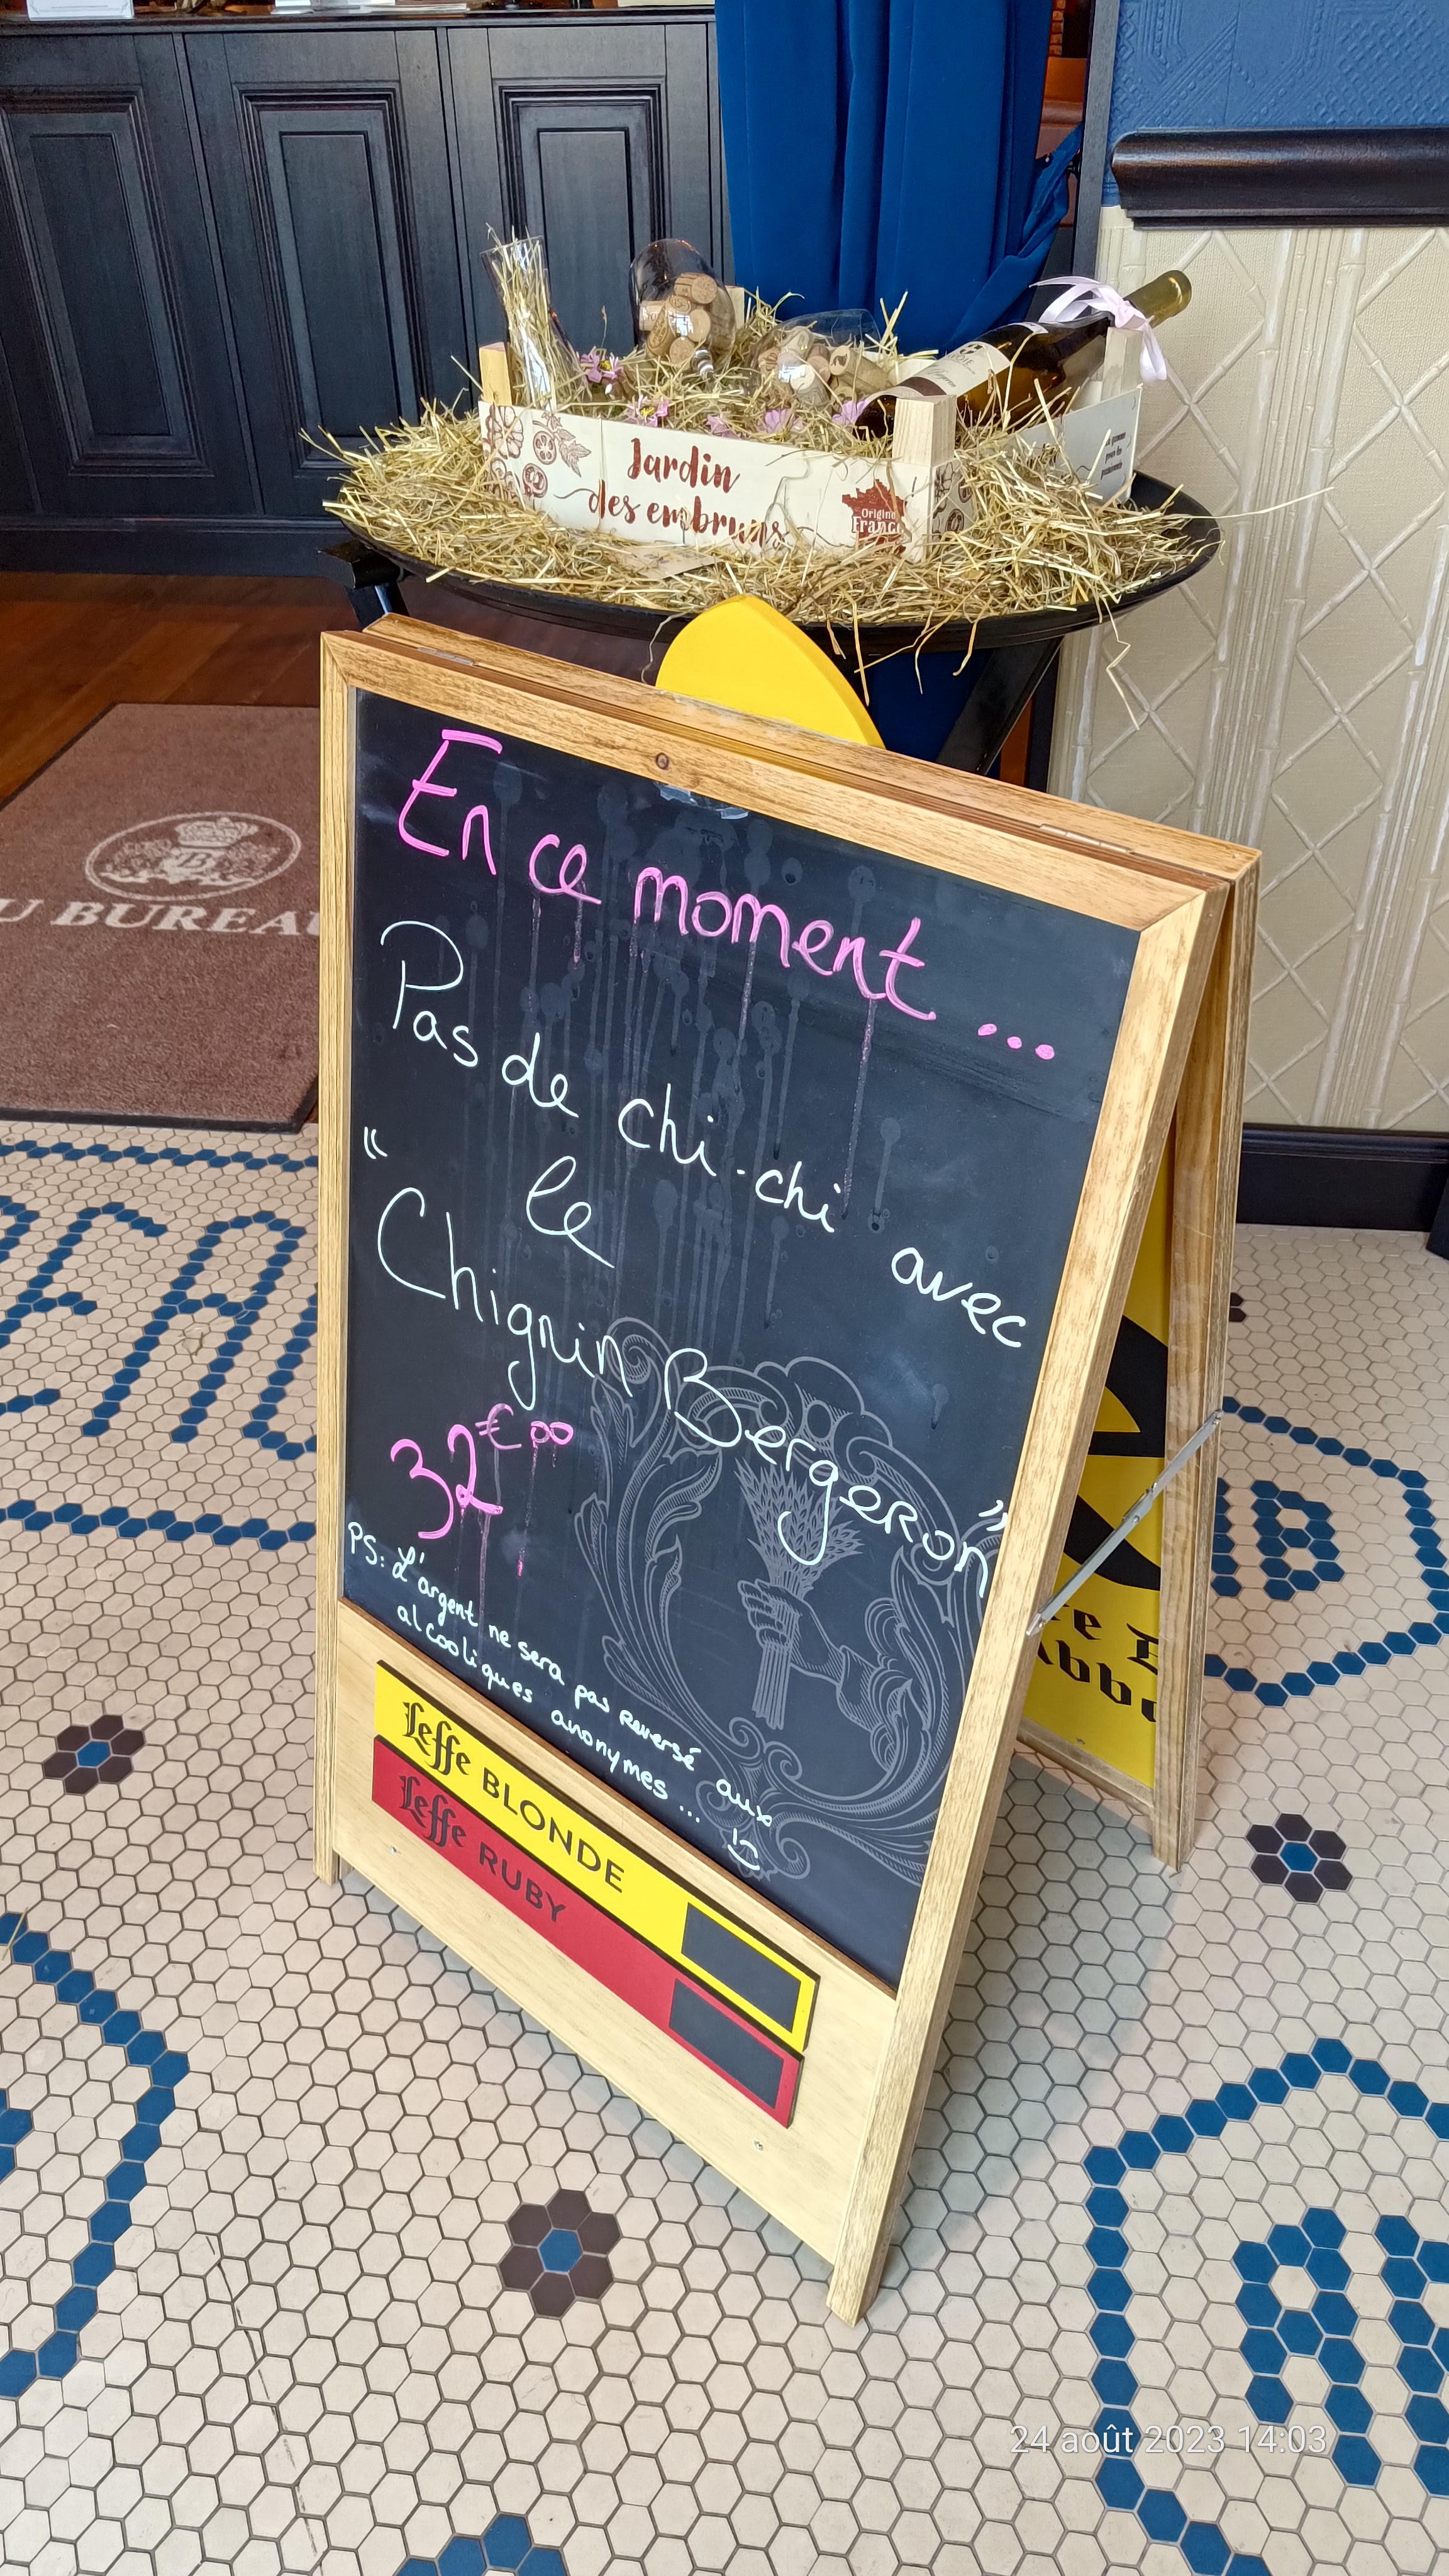 Jardin
des embruns
Origine
France
U BUREAU
En ce moment...
Pas de chi-chi avec
" le
Chignin Bergeron"
32€00
PS: L'argent ne sera pas reversé aux
alcooliques anonymes... :)
Leffe BLONDE
Leffe RUBY
24 août 2023 14:03